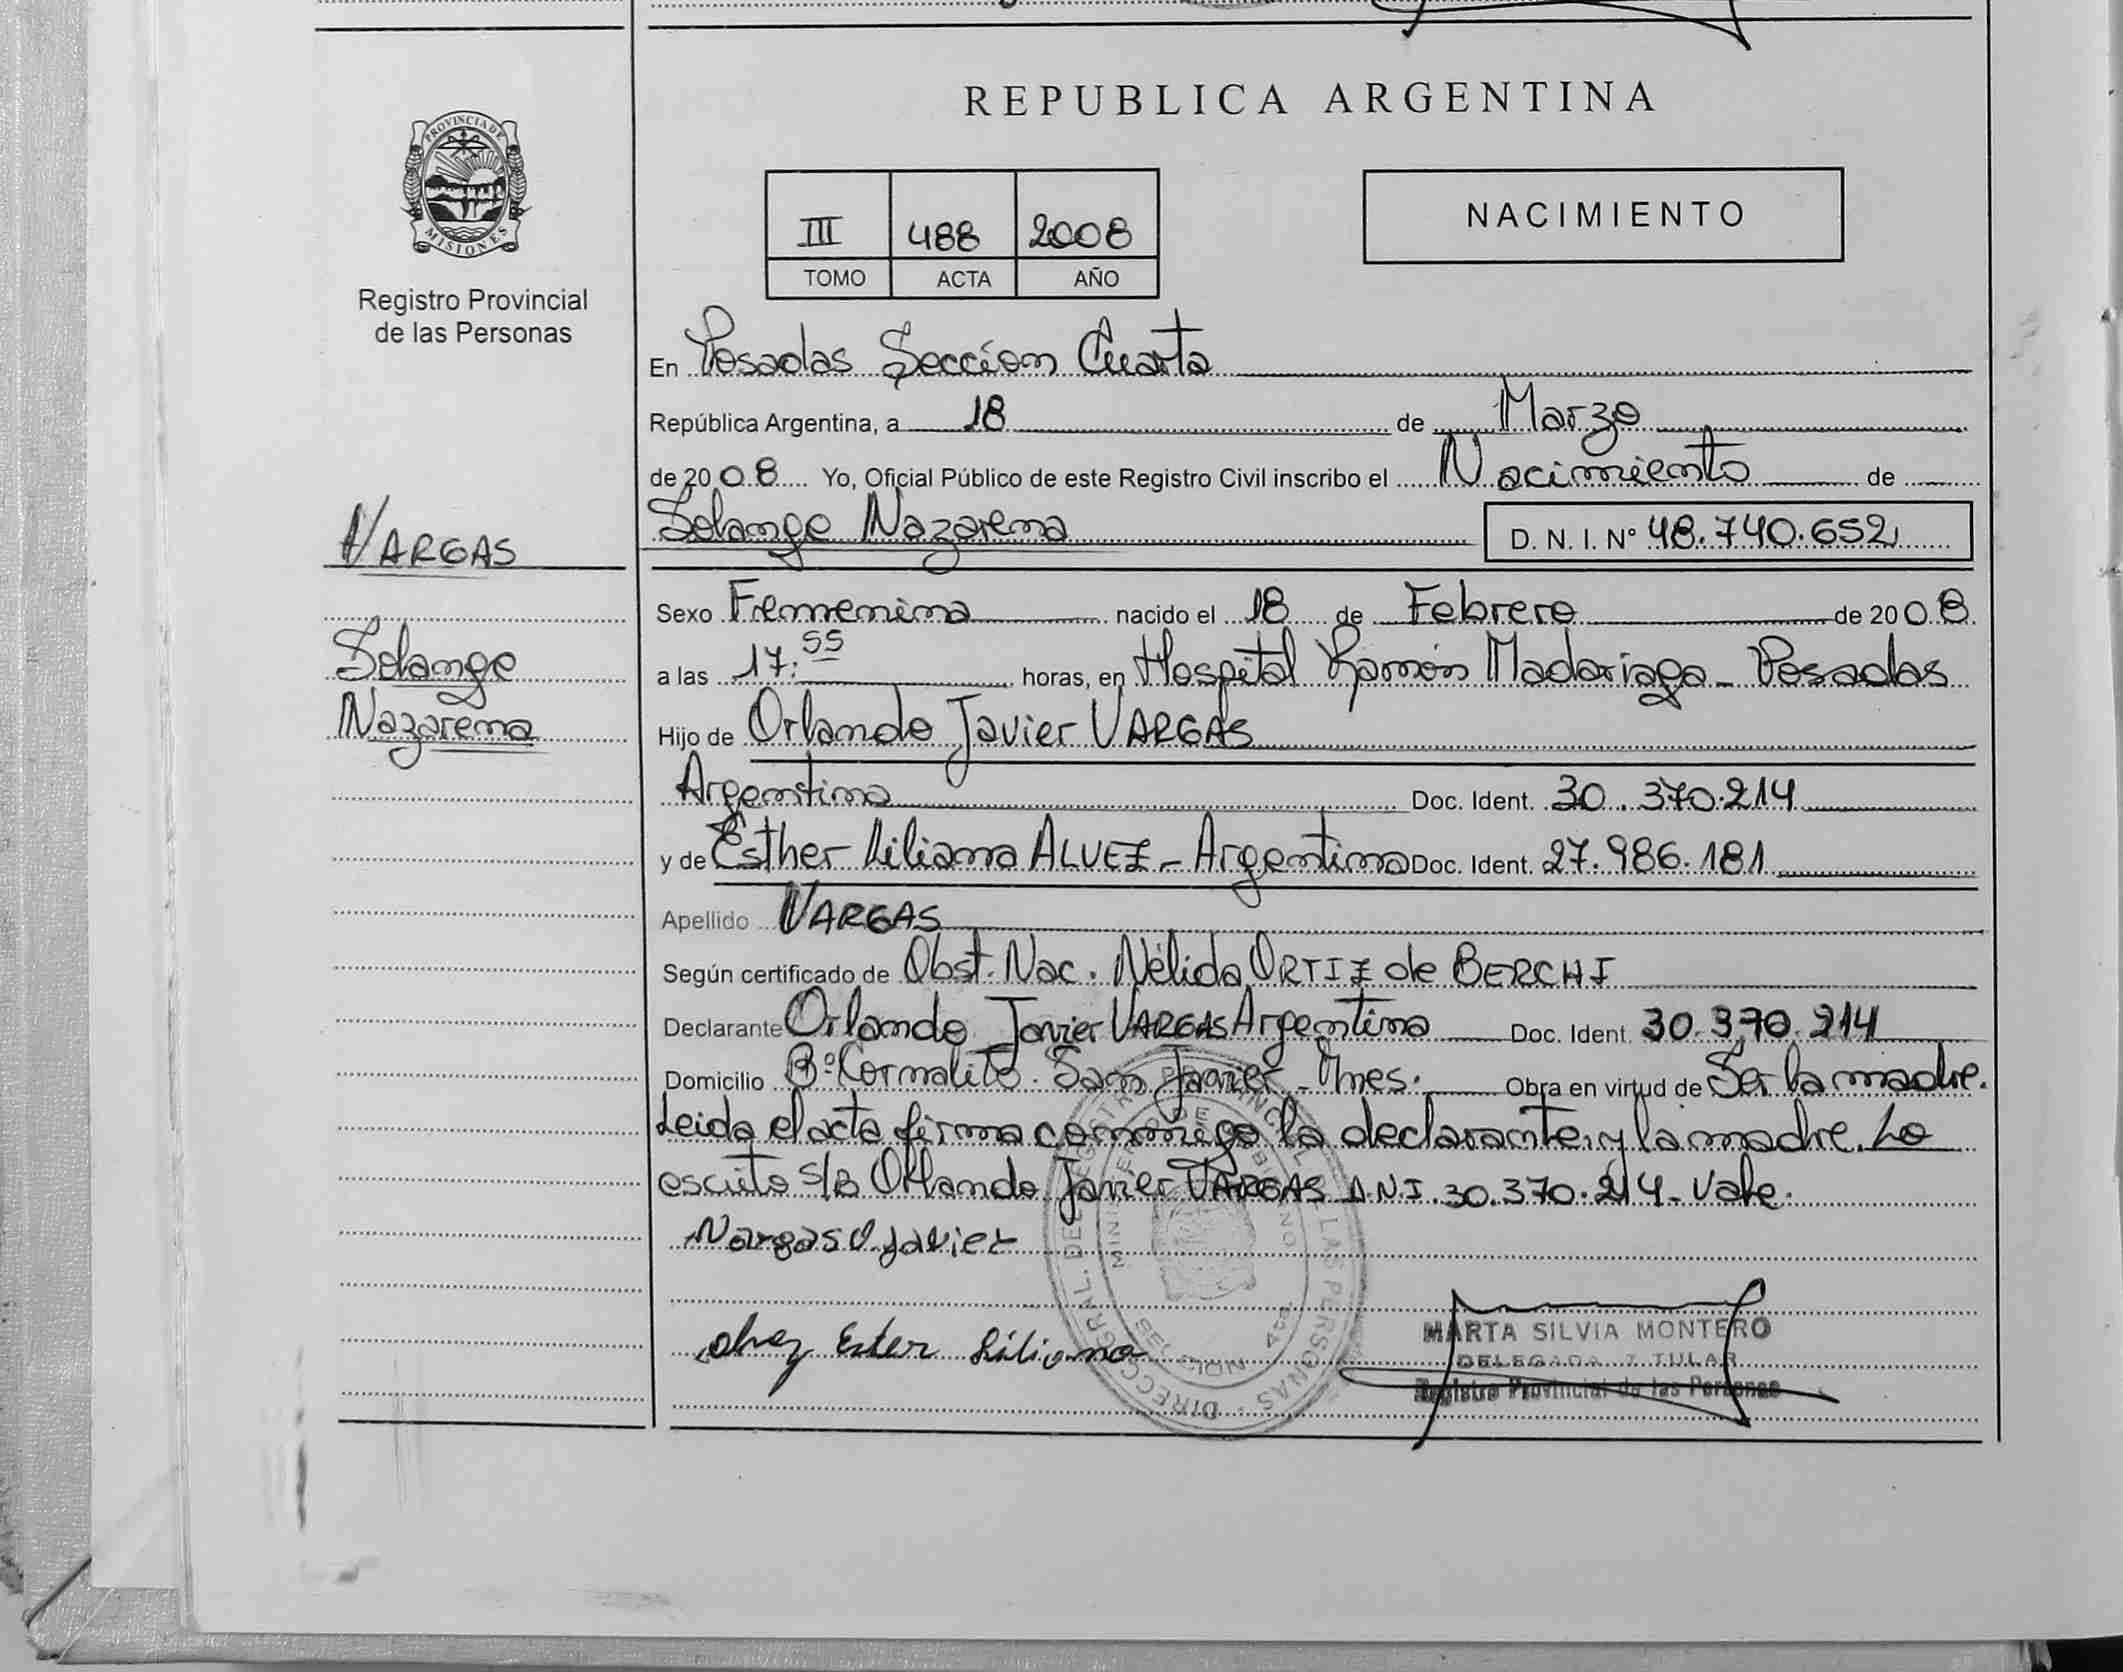 PROVINCIA DE
MISIONES
Registro Provincial
de las Personas
VARGAS
Solange
Nazarena
REPUBLICA ARGENTINA
III 488 2008
TOMO ACTA AÑO
NACIMIENTO
En Posadas Sección Cuarta
República Argentina, a 18 de Marzo
de 2008 Yo, Oficial Público de este Registro Civil inscribo el Nacimiento de
Solange Nazarena D. N. I. N° 48.740.652
Sexo Femenina nacido el 18 de Febrero de 2008
a las 17:55 horas, en Hospital Ramón Madariaga - Posadas
Hijo de Orlando Javier VARGAS
Argentina Doc. Ident. 30.370.214
y de Esther Liliana ALVEZ - Argentina Doc. Ident. 27.986.181
Apellido VARGAS
Según certificado de Obst. Nac. Nélida ORTIZ de BERCHI
Declarante Orlando Javier VARGAS Argentina Doc. Ident. 30.370.214
Domicilio B° Cornalito. San Javier - Mnes. Obra en virtud de Ser la madre.
Leida el acta firma conmigo la declarante y la madre. Lo
escrito s/B Orlando Javier VARGAS D.N.I. 30.370.214 - Vale.
Vargas O Javier
Alvez Ester Liliana
MARTA SILVIA MONTERO
DELEGADA TITULAR
Registro Provincial de las Personas